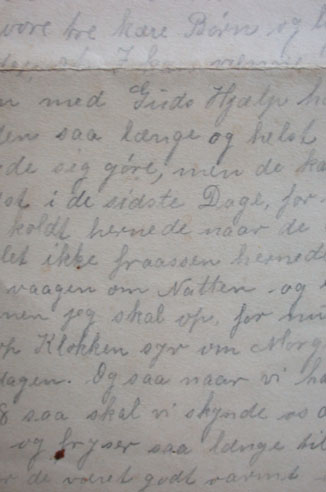 vore tre kære Børn og
med Guds Hjælp
saa længe og helst
sig gøre, men de
i de sidste Dage, for
koldt hernede naar de
ikke fraassen hernede
vaagen om Natten og
men jeg skal op, for
op Klokken syv om
dagen. Og saa naar vi
8 saa skal vi skynde os
og fryser saa længe
de været godt varmt